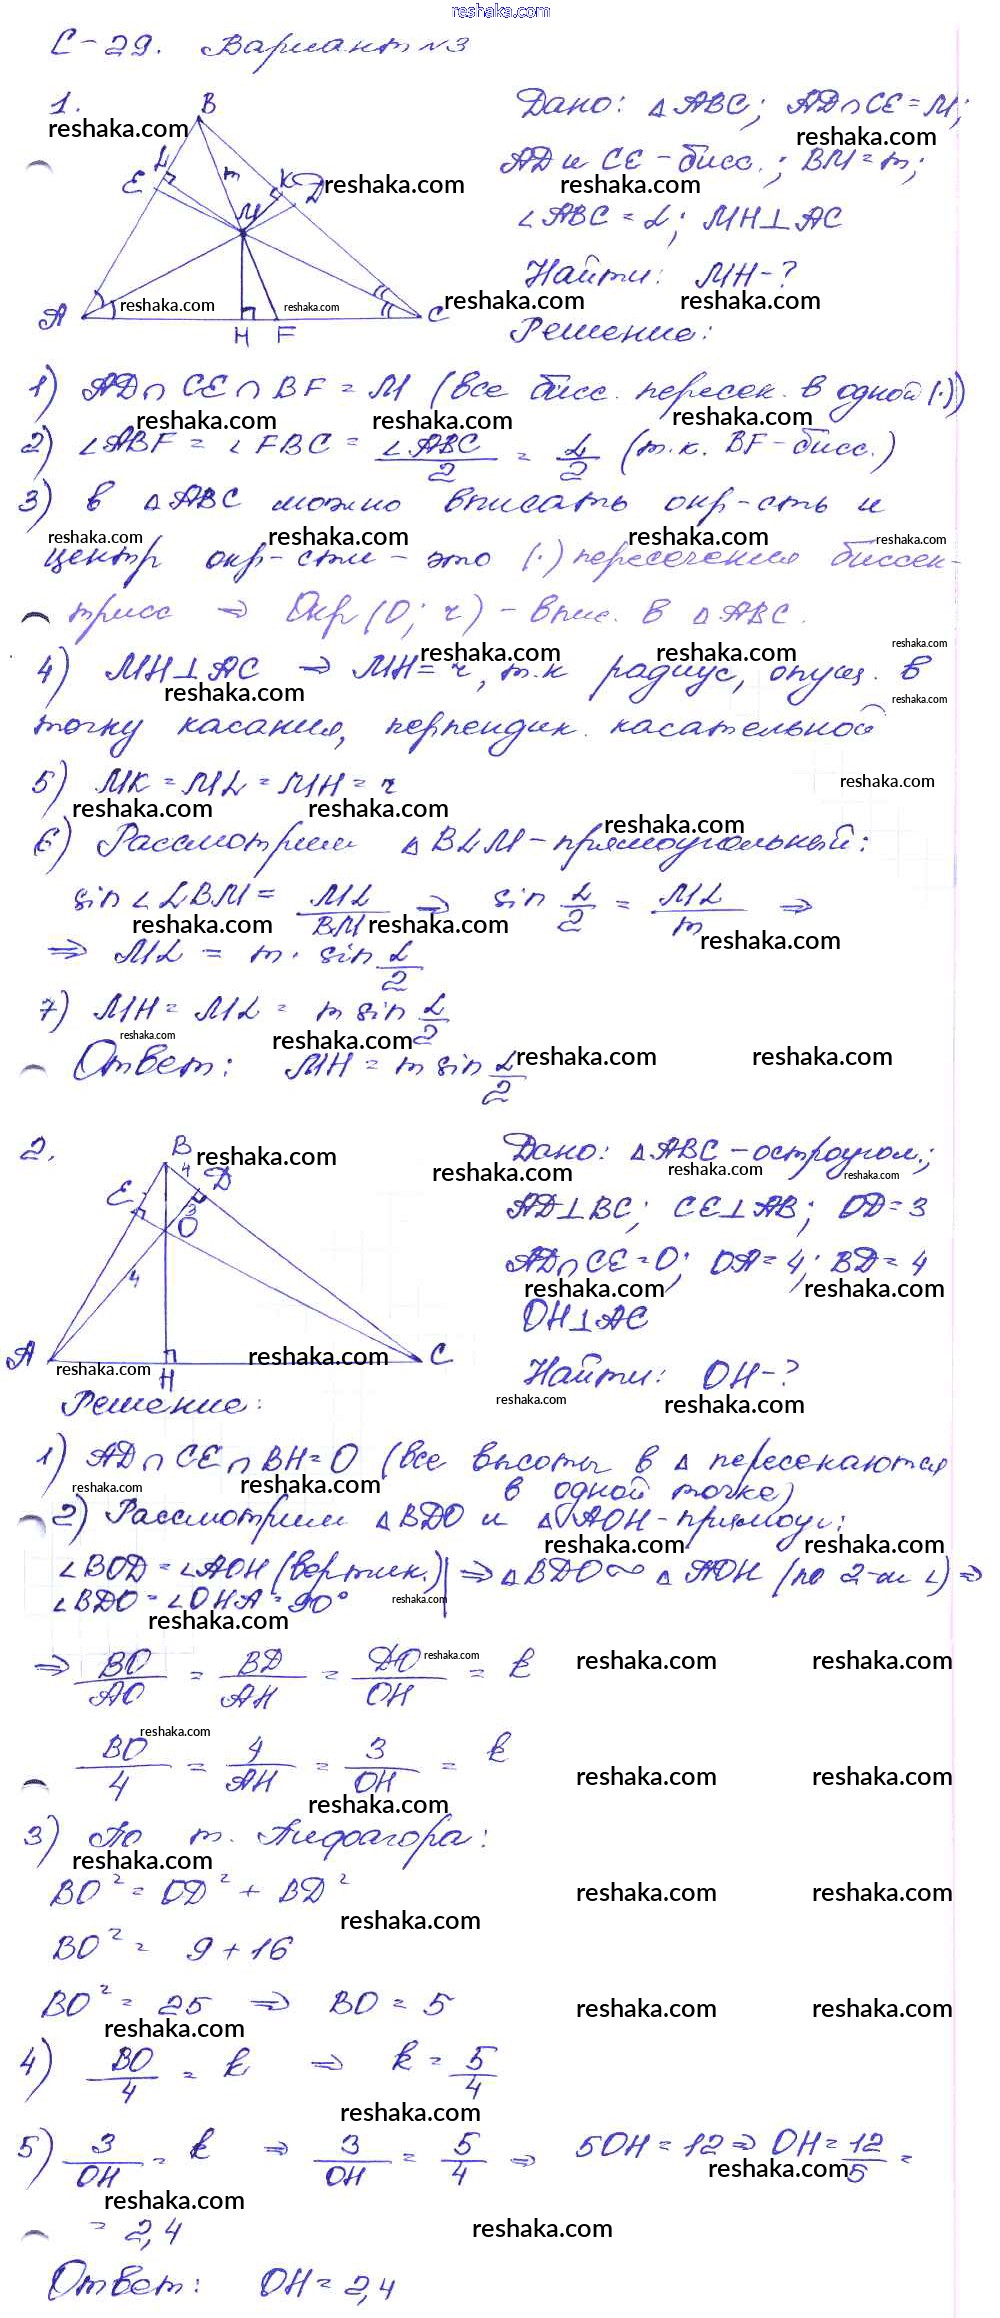 reshaka.com
С-29. Вариант №3
1.
Дано: △ABC; AD∩CE=M;
AD и CE - бисс.; BM=m;
∠ABC = α; MH⊥AC
Найти: MH-?
Решение:
B
L
E
m
K
D
M
A
H
F
C
1) AD∩CE∩BF = M (все бисс. пересек. в одной (·))
2) ∠ABF = ∠FBC = ∠ABC/2 = α/2 (т.к. BF-бисс.)
3) в △ABC можно вписать окр-сть и
центр окр-сти - это (·) пересечения биссек-
трисс ⇒ Окр(O; r) - впис. в △ABC.
4) MH⊥AC ⇒ MH=r, т.к радиус, опущ. в
точку касания, перпендик. касательной
5) MK = ML = MH = r
6) Рассмотрим △BLM-прямоугольный:
sin∠LBM = ML/BM ⇒ sin α/2 = ML/m ⇒
⇒ ML = m · sin α/2
7) MH = ML = m sin α/2
Ответ: MH = m sin α/2
2.
Дано: △ABC-остроугол.;
AD⊥BC; CE⊥AB; OD=3
AD∩CE=O; OA=4; BD=4
OH⊥AC
Найти: OH-?
B
4
D
E
3
O
4
A
H
C
Решение:
1) AD∩CE∩BH=O (все высоты в △ пересекаются
в одной точке)
2) Рассмотрим △BDO и △AOH-прямоуг:
∠BOD=∠AOH (вертик.) | ⇒ △BDO∾△AOH (по 2-м ∠) ⇒
∠BDO=∠OHA=90°
⇒ BO/AO = BD/AH = DO/OH = k
BO/4 = 4/AH = 3/OH = k
3) По т. Пифагора:
BO² = OD² + BD²
BO² = 9 + 16
BO² = 25 ⇒ BO = 5
4) BO/4 = k ⇒ k = 5/4
5) 3/OH = k ⇒ 3/OH = 5/4 ⇒ 5OH = 12 ⇒ OH = 12/5 =
= 2,4
Ответ: OH = 2,4